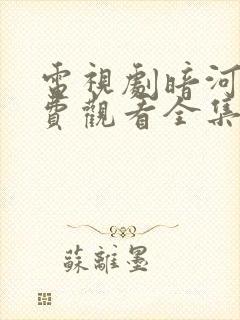 電視劇暗河
費觀看全集
蘇離墨